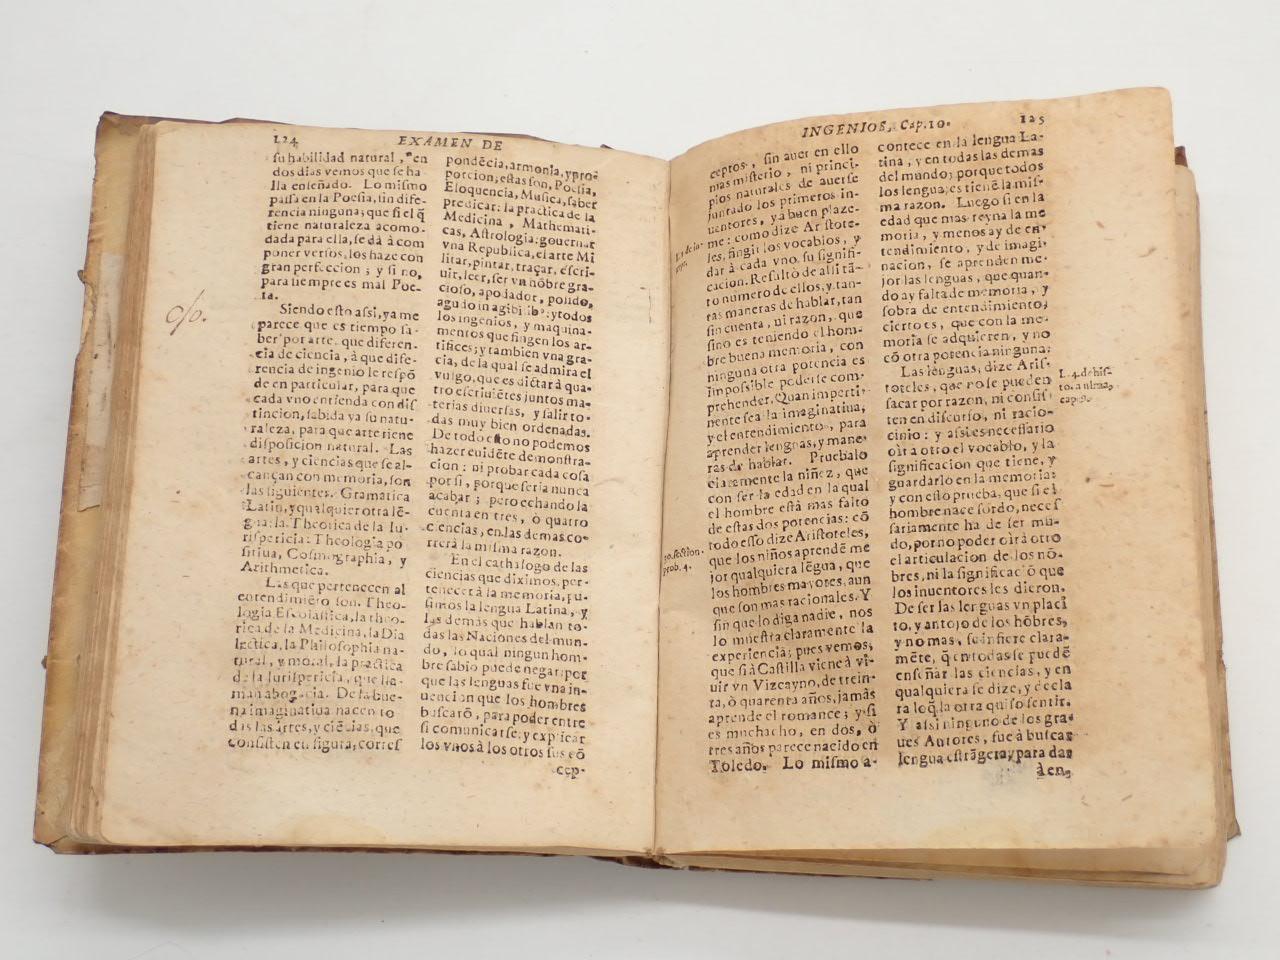 124
EXAMEN DE
su habilidad natural, en
dos dias vemos que se ha-
lla enseñado. Lo mismo
passa en la Poesia, sin dife-
rencia ninguna; que si el q̃
tiene naturaleza acomo-
dada para ella, se dà à com
poner versos, los haze con
gran perfeccion; y si no,
para siempre es mal Poe-
ta.
Siendo esto assi, ya me
parece que es tiempo sa-
ber por arte, que diferen-
cia de ciencia, à que dife-
rencia de ingenio le respõ
de en particular, para que
cada vno entienda con dis
tincion, sabida ya su natu-
raleza, para que arte tiene
disposicion natural. Las
artes, y ciencias que se al-
cançan con memoria, son
las siguientes. Gramatica
Latin, y qualquier otra lẽ-
gua: la Theorica de la Iu-
rispericia: Theologia po
sitiua, Cosmographia, y
Arithmetica.
Las que pertenecen al
entendimiẽto son. Theo-
logia Escolastica, la theo-
rica de la Medicina, la Dia
lectica, la Philosophia na-
tural, y moral, la practica
de la Iurispericia, que lla-
man abogacia. De la bue-
na imaginatiua nacen to
das las artes, y ciẽcias, que
consisten en figura, corres
pondẽcia, armonia, y pro-
porcion; estas son, Poesia,
Eloquencia, Musica, saber
predicar: la practica de la
Medicina, Mathemati-
cas, Astrologia: gouernar
vna Republica, el arte Mi
litar, pintar, traçar, escri-
uir, leer, ser vn hõbre gra-
cioso, apodador, polido,
agudo in agibilibº: y todos
los ingenios, y maquina-
mentos que fingen los ar-
tifices; y tambien vna gra-
cia, de la qual se admira el
vulgo, que es dictar à qua-
tro escriuiẽtes juntos ma-
terias diuersas, y salir to-
das muy bien ordenadas.
De todo esto no podemos
hazer euidẽte demonstra-
cion: ni probar cada cosa
por si, porque seria nunca
acabar; pero echando la
cuenta en tres, ò quatro
ciencias, en las demas co-
rrerà la misma razon.
En el cathalogo de las
ciencias que diximos, per-
tenecer à la memoria, pu-
simos la lengua Latina, y
las demàs que hablan to-
das las Naciones del mun-
do, lo qual ningun hom-
bre sabio puede negar: por
que las lenguas fue vna in-
uencion que los hombres
buscarõ, para poder entre
si comunicarse: y explicar
los vnos à los otros sus cõ
cep-
%.
INGENIOS, Cap. 10.
125
ceptos, sin auer en ello
mas misterio, ni princi-
pios naturales de auerse
juntado los primeros in-
uentores, y à buen plaze-
me: como dize Aristote-
les, fingir los vocablos, y
dar à cada vno su signifi-
cacion. Resultò de alli tã-
to numero de ellos, y tan-
tas maneras de hablar, tan
sin cuenta, ni razon, que
sino es teniendo el hom-
bre buena memoria, con
ninguna otra potencia es
impossible poderse com-
prehender. Quan imperti-
nente sea la imaginatiua,
y el entendimiento, para
aprender lenguas, y mane-
ras de hablar. Pruebalo
claramente la niñez, que
con ser la edad en la qual
el hombre està mas falto
de estas dos potencias: cõ
todo esso dize Aristoteles,
que los niños aprendẽ me
jor qualquiera lẽgua, que
los hombres mayores, aun
que son mas racionales. Y
sin que lo diga nadie, nos
lo muestra claramente la
experiencia; pues vemos,
que si à Castilla viene à vi-
uir vn Vizcayno, de trein-
ta, ò quarenta años, jamàs
aprende el romance; y si
es muchacho, en dos, ò
tres años parece nacido en
Toledo. Lo mismo a-
30. section.
prob. 4.
contece en la lengua La-
tina, y en todas las demas
del mundo; porque todos
los lengua; es tienẽ la mis-
ma razon. Luego si en la
edad que mas reyna la me
moria, y menos ay de en-
tendimiento, y de imagi-
nacion, se aprenden me-
jor las lenguas, que quan-
do ay falta de memoria, y
sobra de entendimiento;
cierto es, que con la me-
moria se adquieren, y no
cõ otra potencia ninguna:
Las lenguas, dize Aris-
toteles, que no se pueden
sacar por razon, ni consis-
ten en discurso, ni racio-
cinio: y assi es necessario
oir à otro el vocablo, y la
significacion que tiene, y
guardarlo en la memoria:
y con esto prueba, que si el
hombre nace sordo, neces
sariamente ha de ser mu-
do, por no poder oir à otro
el articulacion de los nõ-
bres, ni la significaciõ que
los inuentores les dieron.
De ser las lenguas vn placi
to, y antojo de los hõbres,
y no mas, se infiere clara-
mẽte, q̃ en todas se puedẽ
enseñar las ciencias, y en
qualquiera se dize, y decla
ra lo q̃ la otra quiso sentir.
Y assi ninguno de los gra-
ues Autores, fue à buscar
lengua estrãgera, para dar
à en-
L. 4. de his-
to. animal.
cap. 9.